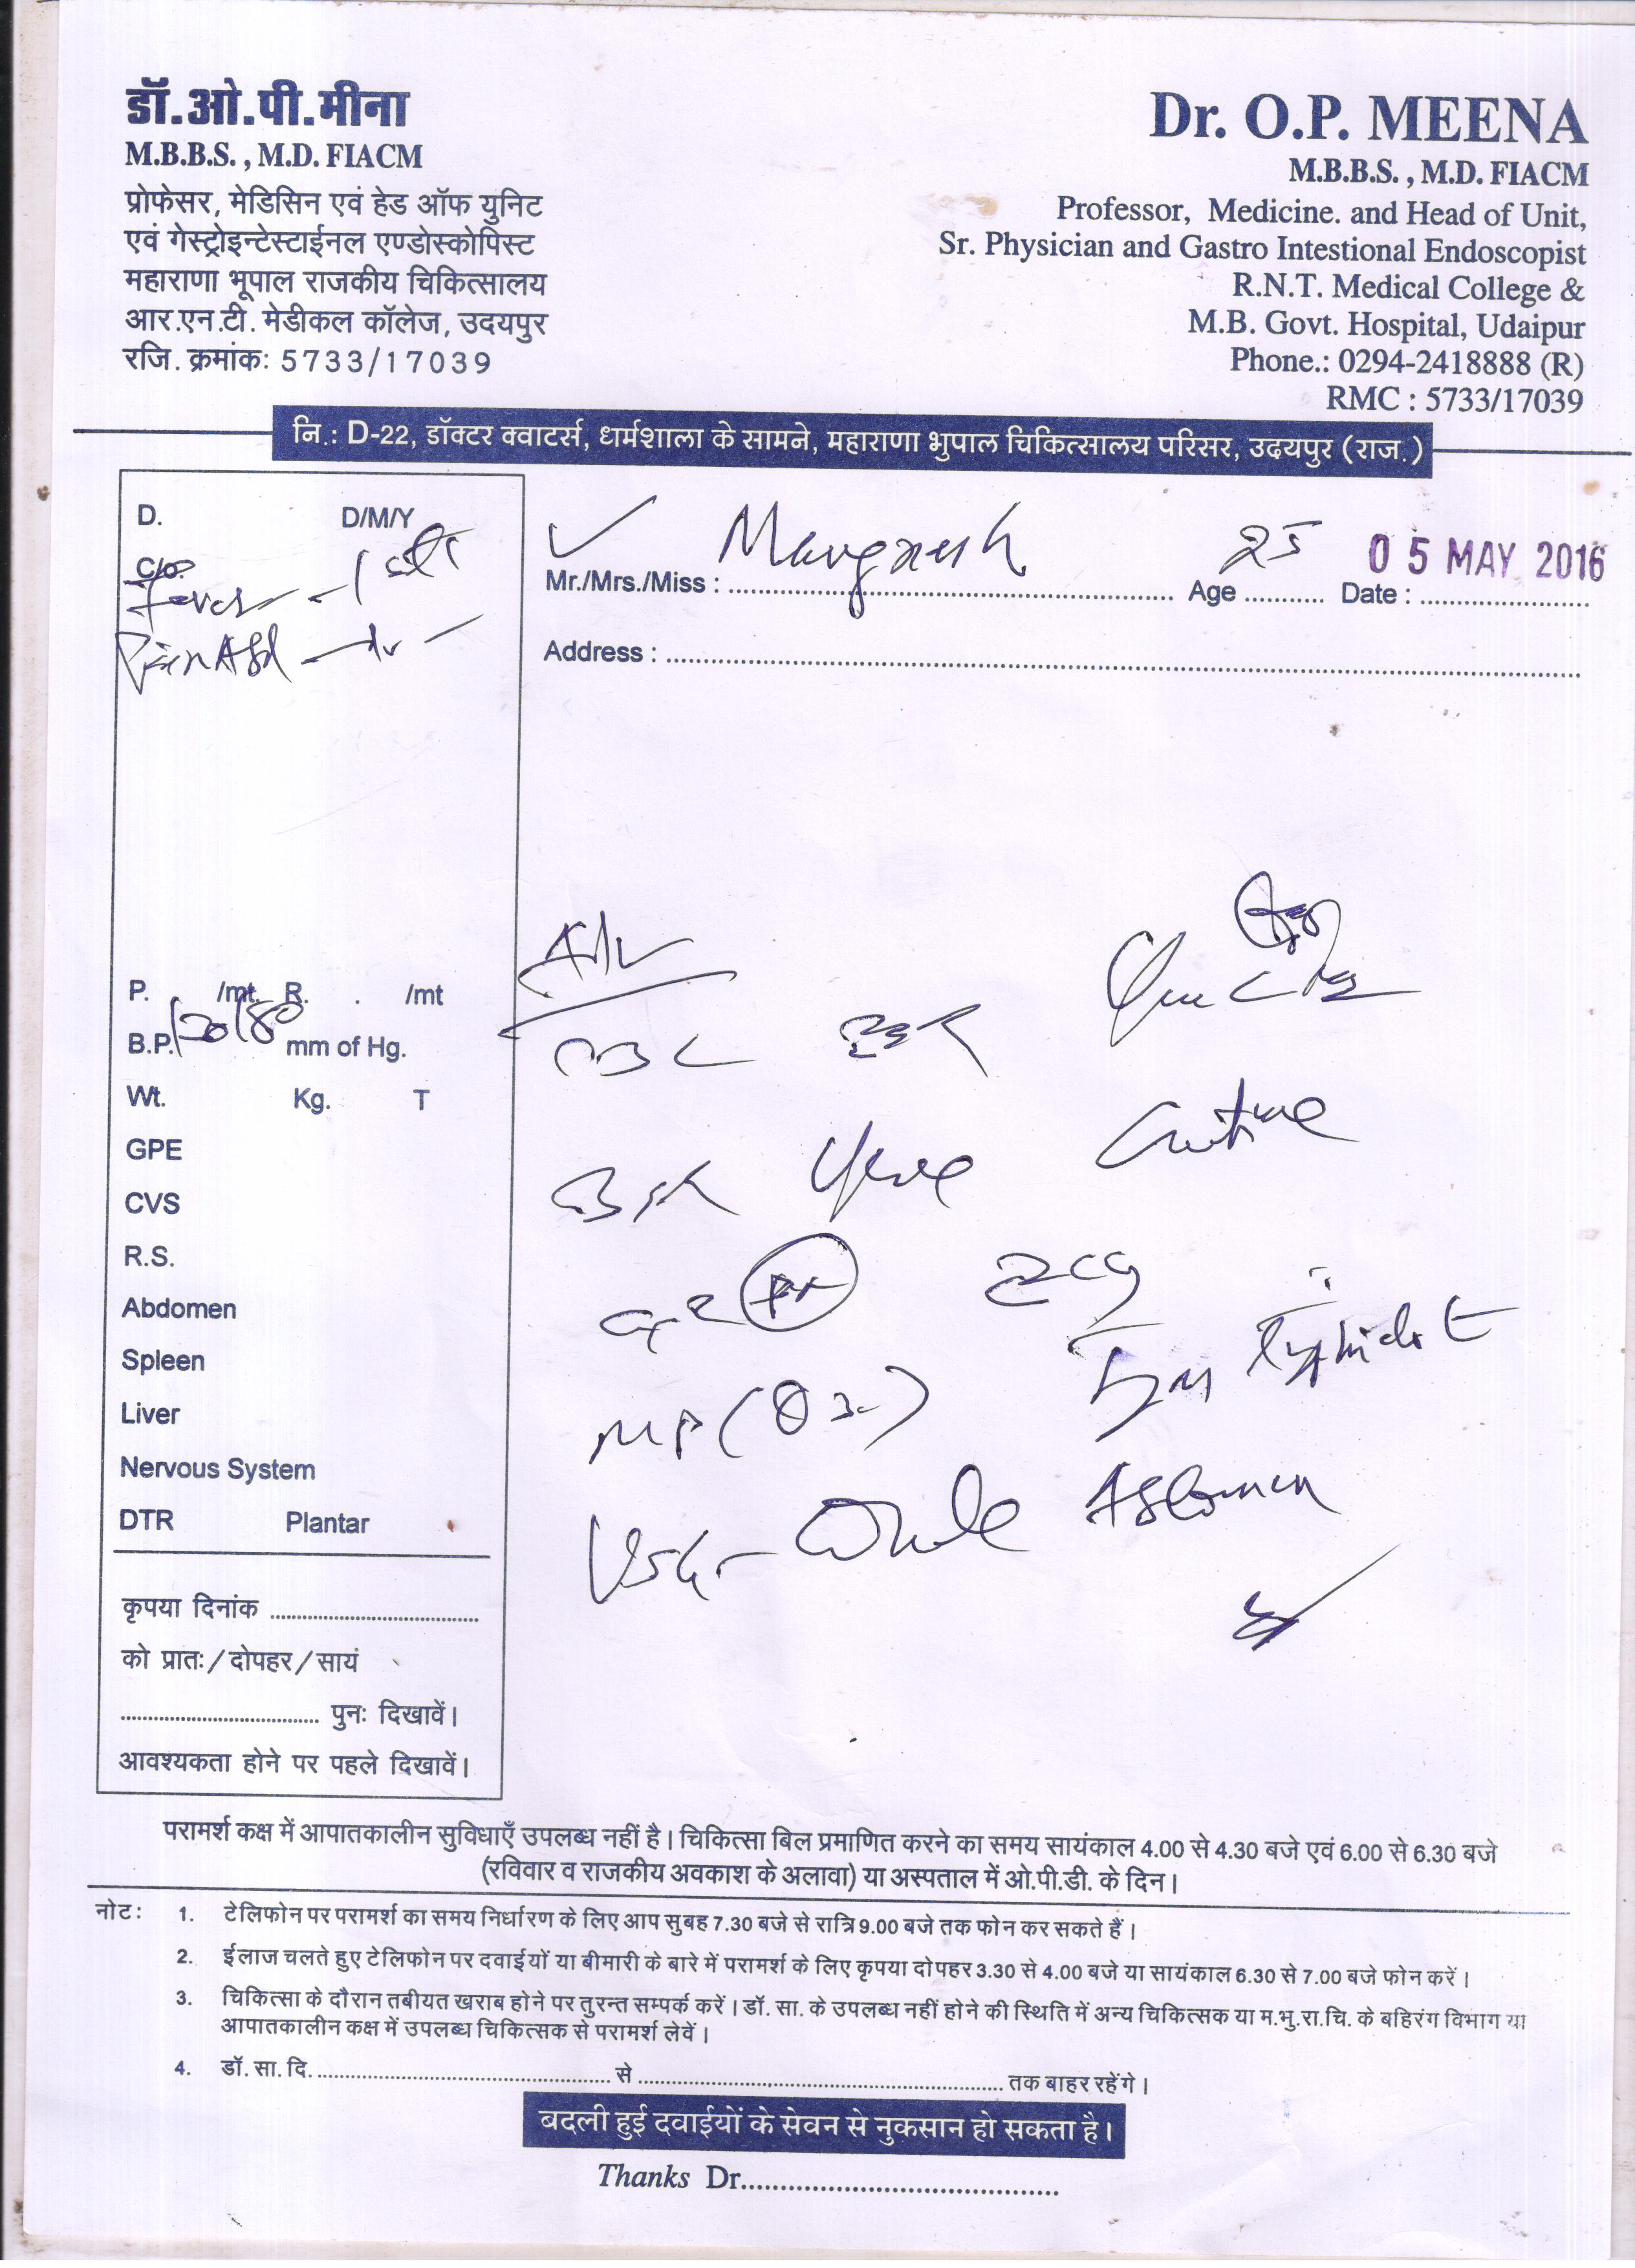 डॉ.ओ.पी.मीना
M.B.B.S. , M.D. FIACM
प्रोफेसर, मेडिसिन एवं हेड ऑफ युनिट
एवं गेस्ट्रोइन्टेस्टाईनल एण्डोस्कोपिस्ट
महाराणा भूपाल राजकीय चिकित्सालय
आर.एन.टी. मेडीकल कॉलेज, उदयपुर
रजि. क्रमांक: 5733/17039
Dr. O.P. MEENA
M.B.B.S. , M.D. FIACM
Professor, Medicine. and Head of Unit,
Sr. Physician and Gastro Intestional Endoscopist
R.N.T. Medical College &
M.B. Govt. Hospital, Udaipur
Phone.: 0294-2418888 (R)
RMC : 5733/17039
नि.: D-22, डॉक्टर क्वाटर्स, धर्मशाला के सामने, महाराणा भुपाल चिकित्सालय परिसर, उदयपुर (राज.)
D. D/M/Y
C/o.
Fever
Pain Abd
P. /mt. R. . /mt
B.P. 120/80 mm of Hg.
Wt. Kg. T
GPE
CVS
R.S.
Abdomen
Spleen
Liver
Nervous System
DTR Plantar
कृपया दिनांक
को प्रातः/दोपहर/सायं
पुनः दिखावें।
आवश्यकता होने पर पहले दिखावें।
Mr./Mrs./Miss : Age 25 Date : 05 MAY 2016
Address :
Adv
CBC
Urine Culture
ECG
MP
IgM Typhidot
USG - Whole Abdomen
परामर्श कक्ष में आपातकालीन सुविधाएँ उपलब्ध नहीं है। चिकित्सा बिल प्रमाणित करने का समय सायंकाल 4.00 से 4.30 बजे एवं 6.00 से 6.30 बजे
(रविवार व राजकीय अवकाश के अलावा) या अस्पताल में ओ.पी.डी. के दिन।
नोट: 1. टेलिफोन पर परामर्श का समय निर्धारण के लिए आप सुबह 7.30 बजे से रात्रि 9.00 बजे तक फोन कर सकते हैं।
2. ईलाज चलते हुए टेलिफोन पर दवाईयों या बीमारी के बारे में परामर्श के लिए कृपया दोपहर 3.30 से 4.00 बजे या सायंकाल 6.30 से 7.00 बजे फोन करें।
3. चिकित्सा के दौरान तबीयत खराब होने पर तुरन्त सम्पर्क करें। डॉ. सा. के उपलब्ध नहीं होने की स्थिति में अन्य चिकित्सक या म.भु.रा.चि. के बहिरंग विभाग या
आपातकालीन कक्ष में उपलब्ध चिकित्सक से परामर्श लेवें।
4. डॉ. सा. दि. से तक बाहर रहेंगे।
बदली हुई दवाईयों के सेवन से नुकसान हो सकता है।
Thanks Dr.